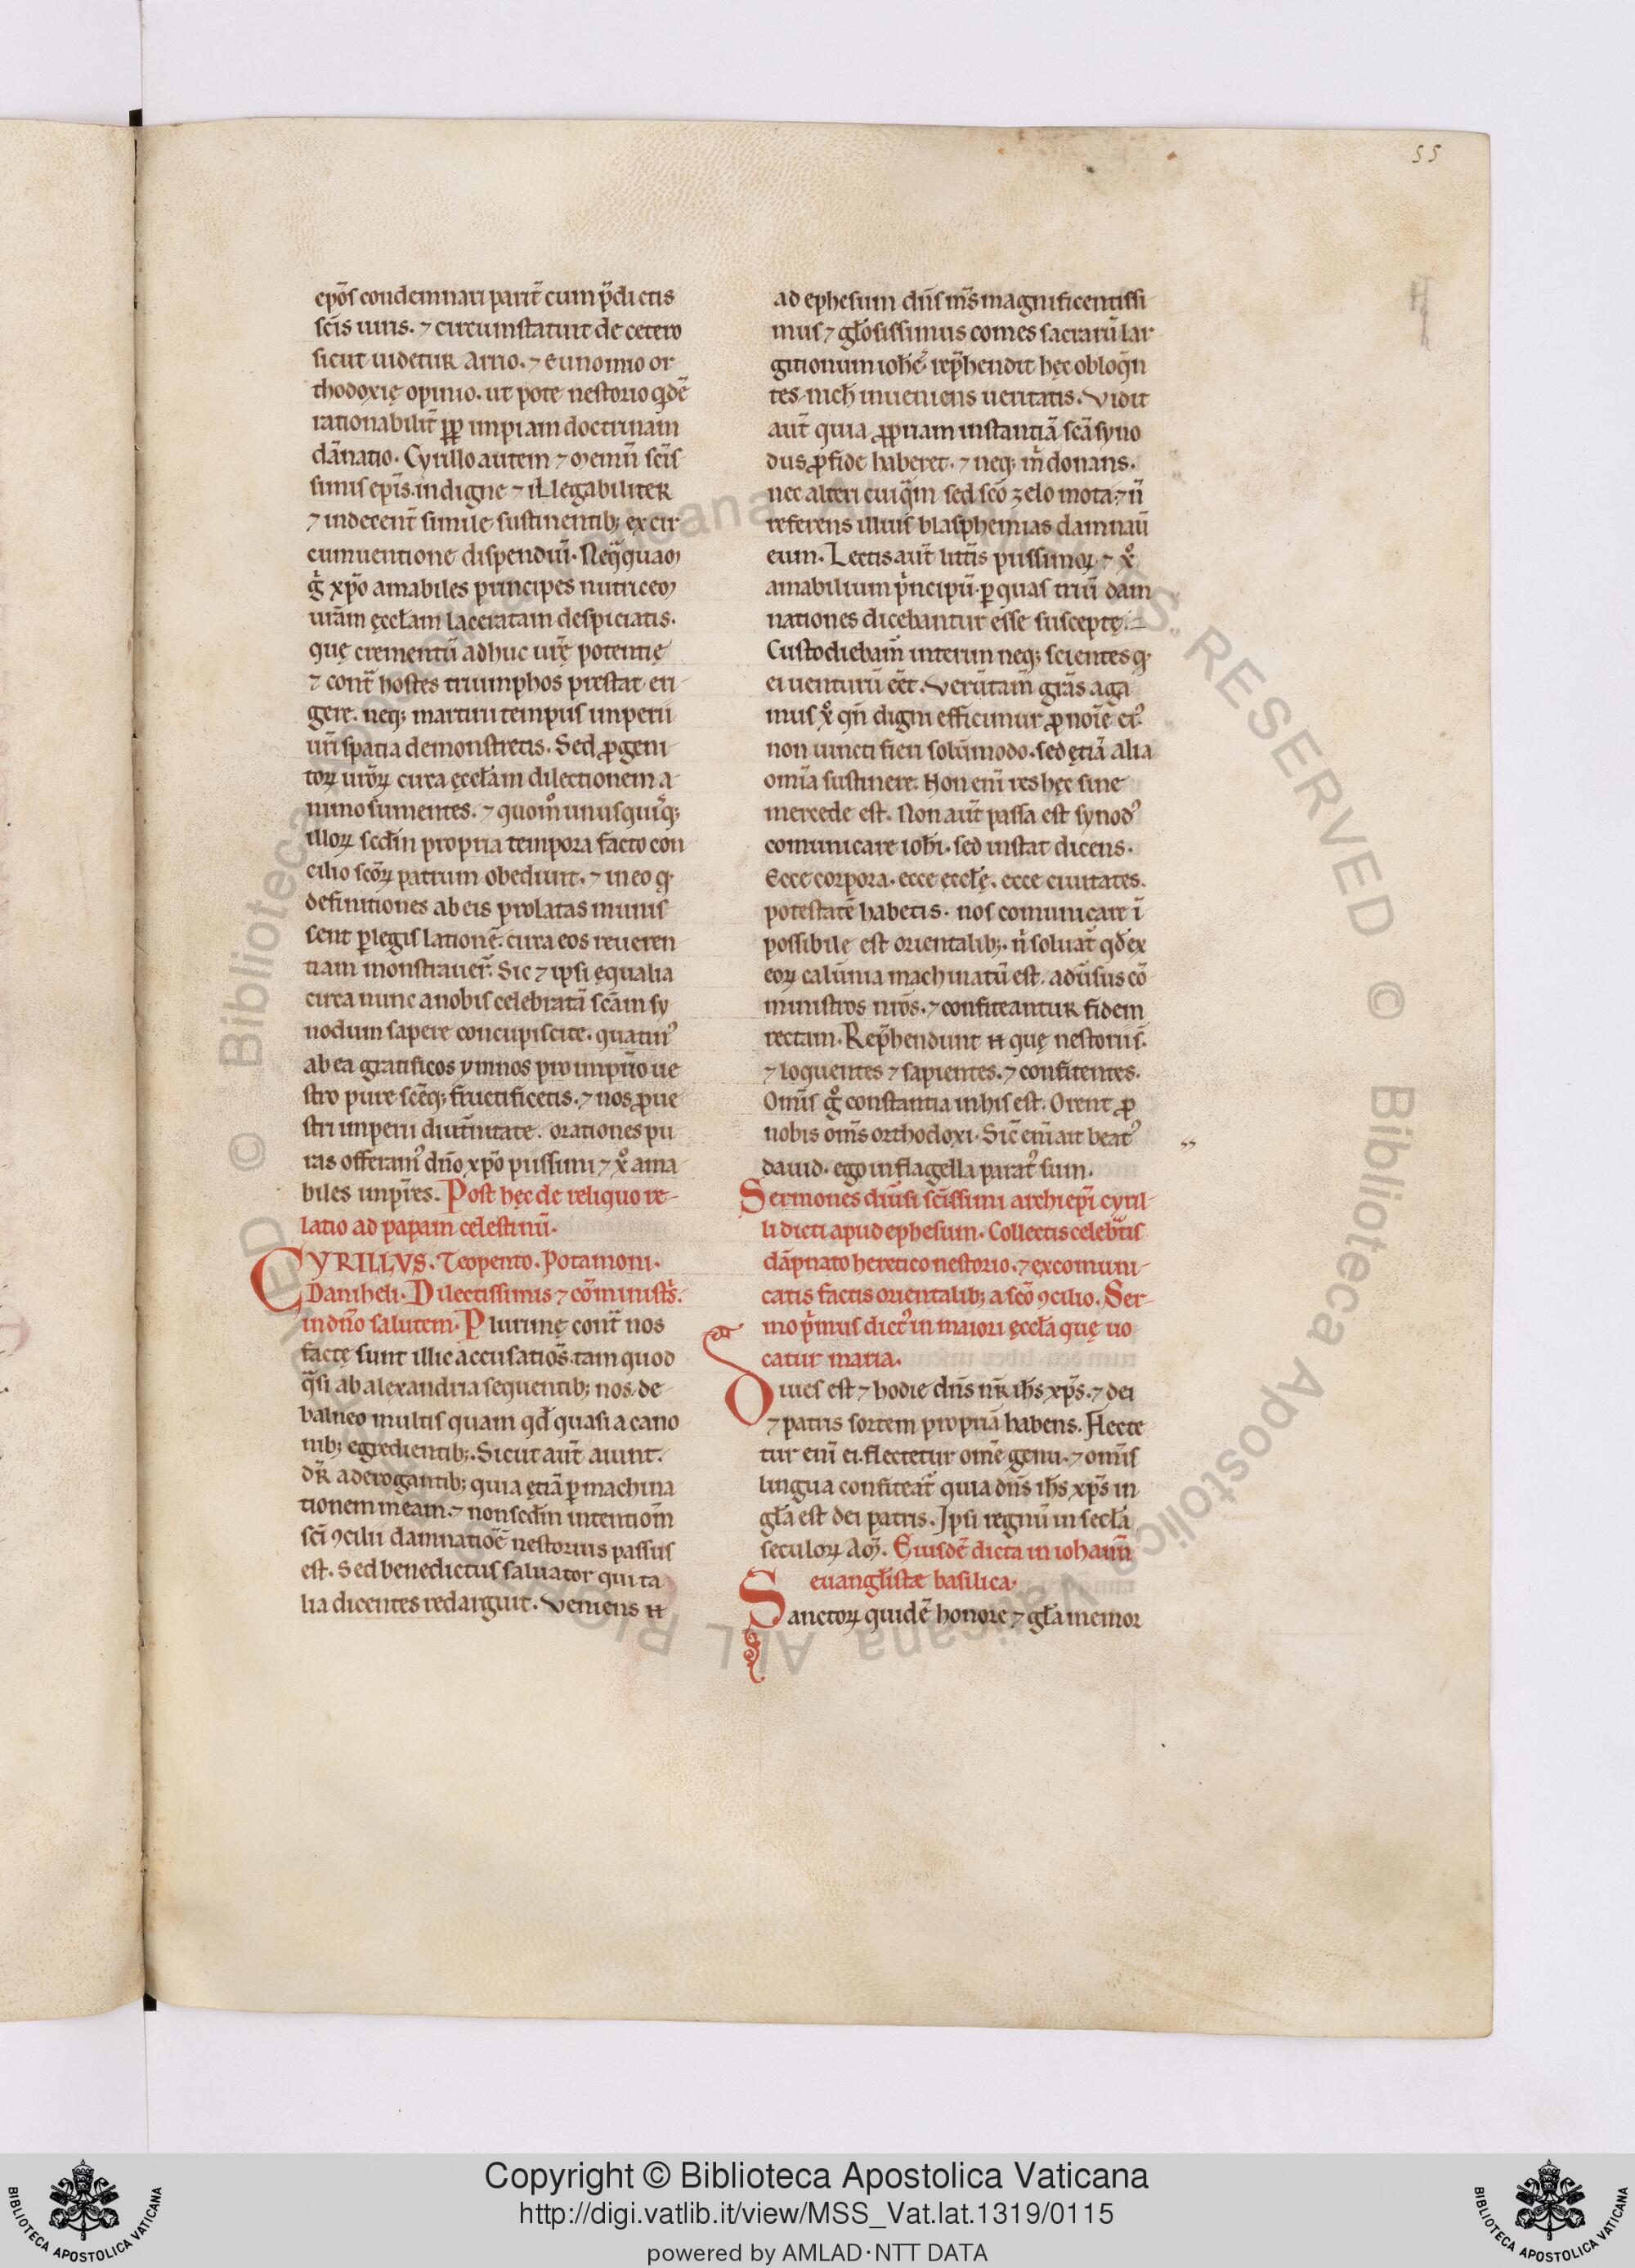 55
ep̃os condemnari parit̃ cum p̃dictis
sc̃is uiris. ⁊ circumstatuit de cetero
sicut uidetur Arrio. ⁊ eunomio or
thodoxię opinio. ut pote nestorio qdẽ
rationabilit̃ ꝓp impiam doctrinam
dãnatio. Cyrillo autem ⁊ memñ sc̃is
simis ep̃is. indigne ⁊ illegabiliter
⁊ indecent̃ simile sustinentib; ex cir
cumuentione dispendiũ. Neq̃quam
g̊ xp̃o amabiles principes nutricem
ur̃am ęccl̃am laceratam despiciatis.
quę crementũ adhuc ur̃ę potentię
⁊ cont̃ hostes triumphos prestat eri
gere. neq; martirii tempus imperii
ur̃i spatia demonstretis. Sed ꝓgeni
toꝝ ur̃oꝝ circa ęccl̃am dilectionem a
nimo sumentes. ⁊ quom̊ unusquiq̃;
illoꝝ scdm̃ propria tempora facto con
cilio sc̃oꝝ patrum obediuit. ⁊ in eo q.
definitiones ab eis prolatas munis
sent ꝑ legis lationẽ. circa eos reueren
tiam monstrauer̃. Sic ⁊ ipsi ęqualia
circa nunc a nobis celebratã sc̃am sy
nodum sapere concupiscite. quatin᾽
ab ea gratificos ymnos pro imp̃io ue
stro pure sc̃eq; fructificetis. ⁊ nos ꝓ ue
stri imperii diut̃nitate. orationes pu
ras offeram᾽ dño xp̃o piissimi ⁊ x̊ ama
biles imp̃res. Post hęc de reliquo re-
latio ad papam celestinũ.
CYRILLVS. Teopento. Potamoni.
Daniheli. Dilectissimis ⁊ cõministr̃.
in dño salutem. Plurimę cont̃ nos
factę sunt illic accusatiõs. tam quod
q̃si ab alexandria sequentib; nos. de
balneo multis quam qd̃ quasi a cano
nib; egredientib;. Sicut aut̃ aiunt.
dr̃ a derogantib; quia ętiã ꝑ machina
tionem meam. ⁊ non scdm̃ intentiom̃
sc̃i ꝯcilii damnatioẽ nestorius passus
est. Sed benedictus saluator qui ta
lia dicentes redarguit. Veniens ħ
ad ephesum dñs m̃s magnificentissi
mus ⁊ gl̃osissimus comes sacrarũ lar
gitionum ioh̃s. rep̃hendit hęc obloq̃n
tes. nich̃ inueniens ueritatis. Vidit
aut̃ quia ꝓpriam instantiã sc̃a syno
dus ꝓ fide haberet. ⁊ neq; m̃ donans.
nec alteri cuiq̃m sed sc̃o zelo mota. ⁊ ñ
referens illius blasphemias damnaũ
eum. Lectis aut̃ litt̃is piissimoꝝ ⁊ x̊
amabilium p̃ncipũ. ꝑ quas triũ dam
nationes dicebantur esse susceptę.
Custodiebam̃ interim neq; scientes q.
ei uenturũ eẽt. Verũtam̃ gr̃as aga
mus x̊ qñ digni efficimur ꝓ noĩe ei᾽.
non uincti fieri solũmodo. sed ętiã alia
omĩa sustinere. Non enĩ res hęc sine
mercede est. Non aut̃ passa est synod᾽
comunicare ioh̃i. sed instat dicens.
Ecce corpora. ecce ęccl̃ę. ecce ciuitates.
potestatẽ habetis. nos comunicare ĩ
possibile est orientalib;. ñ soluat̃ qd̃ ex
eoꝝ calũnia machinatũ est. adũsus cõ
ministros nr̃os. ⁊ confiteantur fidem
rectam. Rep̃hendunt ħ quę nestorii s̃.
⁊ loquentes ⁊ sapientes. ⁊ confitentes.
Omĩs g̊ constantia in his est. Orent ꝓ
nobis om̃s orthodoxi. Sic̃ enĩ ait beat᾽
dauid. ego in flagella parat᾽ sum.
Sermones diũsi sc̃issimi archiep̃i cyril-
li dicti apud ephesum. Collectis celebr̃tis
dãpnato heretico nestorio. ⁊ excomuni-
catis factis orientalib; a sc̃o ꝯcilio. Ser-
mo p̃mus dict᾽ in maiori ęccl̃a quę uo
catur maria.
Diues est ⁊ hodie dñs nr̃ ih̃s xp̃s. ⁊ dei
⁊ patris sortem propriã habens. Flecte
tur enĩ ei. flectetur om̃e genu. ⁊ omĩs
lingua confiteat̃ quia dñs ih̃s xp̃s in
gl̃a est dei patris. Ipsi regnũ in secl̃a
seculoꝝ Am̃. Eiusdẽ dicta in iohann̄
euangl̃istæ basilica.
Sanctoꝝ quidẽ honore ⁊ gl̃a memor
© Biblioteca Apostolica Vaticana ALL RIGHTS RESERVED © Biblioteca Apostolica Vaticana ALL RIGHTS RESERVED
BIBLIOTECA APOSTOLICA VATICANA
Copyright © Biblioteca Apostolica Vaticana
http://digi.vatlib.it/view/MSS_Vat.lat.1319/0115
powered by AMLAD·NTT DATA
BIBLIOTECA APOSTOLICA VATICANA